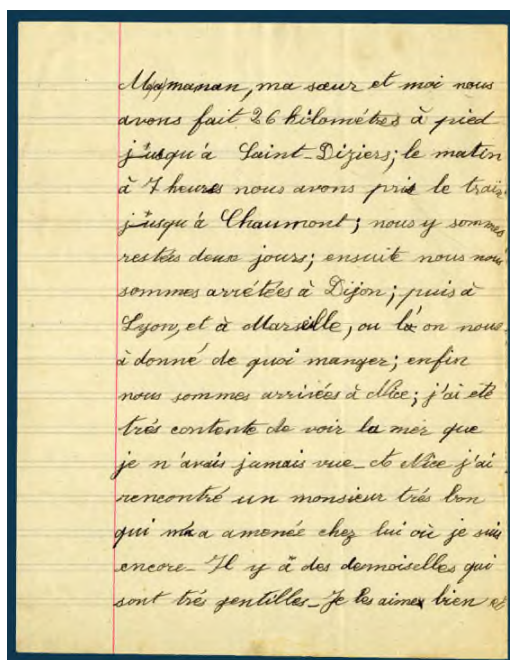 Ma maman, ma sœur et moi nous
avons fait 26 kilomètres à pied
jusqu'à Saint-Diziers; le matin
à 7 heures nous avons pris le train
jusqu'à Chaumont; nous y sommes
restées deux jours; ensuite nous nous
sommes arrétées à Dijon; puis à
Lyon, et à Marseille, ou là on nous
à donné de quoi manger; enfin
nous sommes arrivées à Nice; j'ai eté
trés contente de voir la mer que
je n'avais jamais vue_ A Nice j'ai
rencontré un monsieur trés bon
qui m'a amenée chez lui où je suis
encore_ Il y à des demoiselles qui
sont trés gentilles_ Je les aime bien et